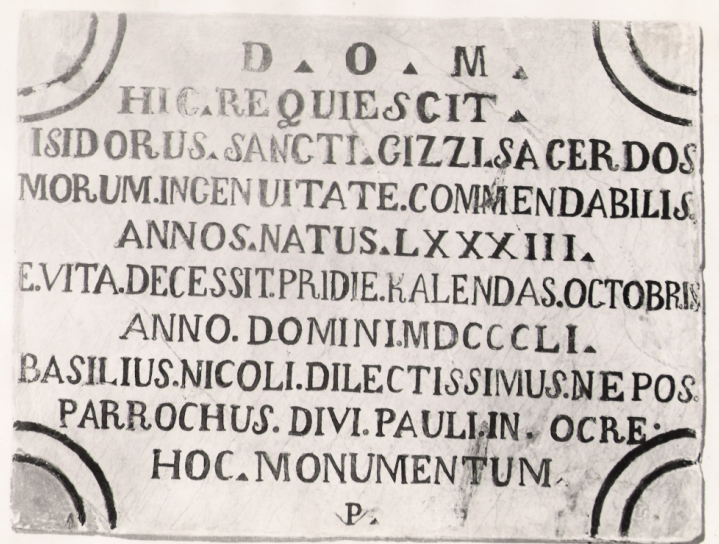 D . O . M .
HIC.REQUIESCIT.
ISIDORUS.SANCTI.GIZZI.SACERDOS
MORUM.INGENUITATE.COMMENDABILIS.
ANNOS.NATUS.LXXXIII.
E.VITA.DECESSIT.PRIDIE.KALENDAS.OCTOBRIS
ANNO.DOMINI.MDCCCLI.
BASILIUS.NICOLI.DILECTISSIMUS.NEPOS.
PARROCHUS.DIVI.PAULI.IN.OCRE.
HOC.MONUMENTUM.
P.